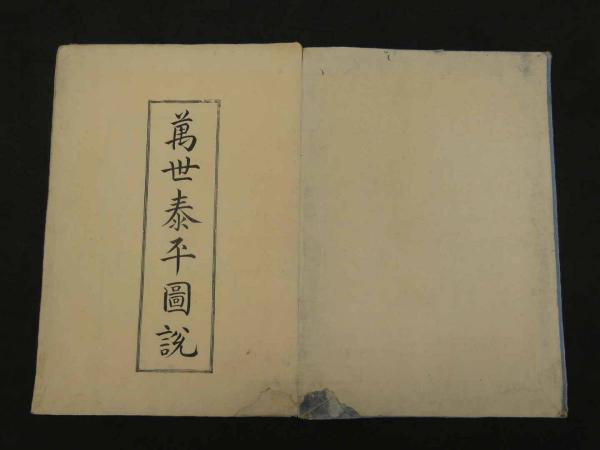 萬世泰平圖説